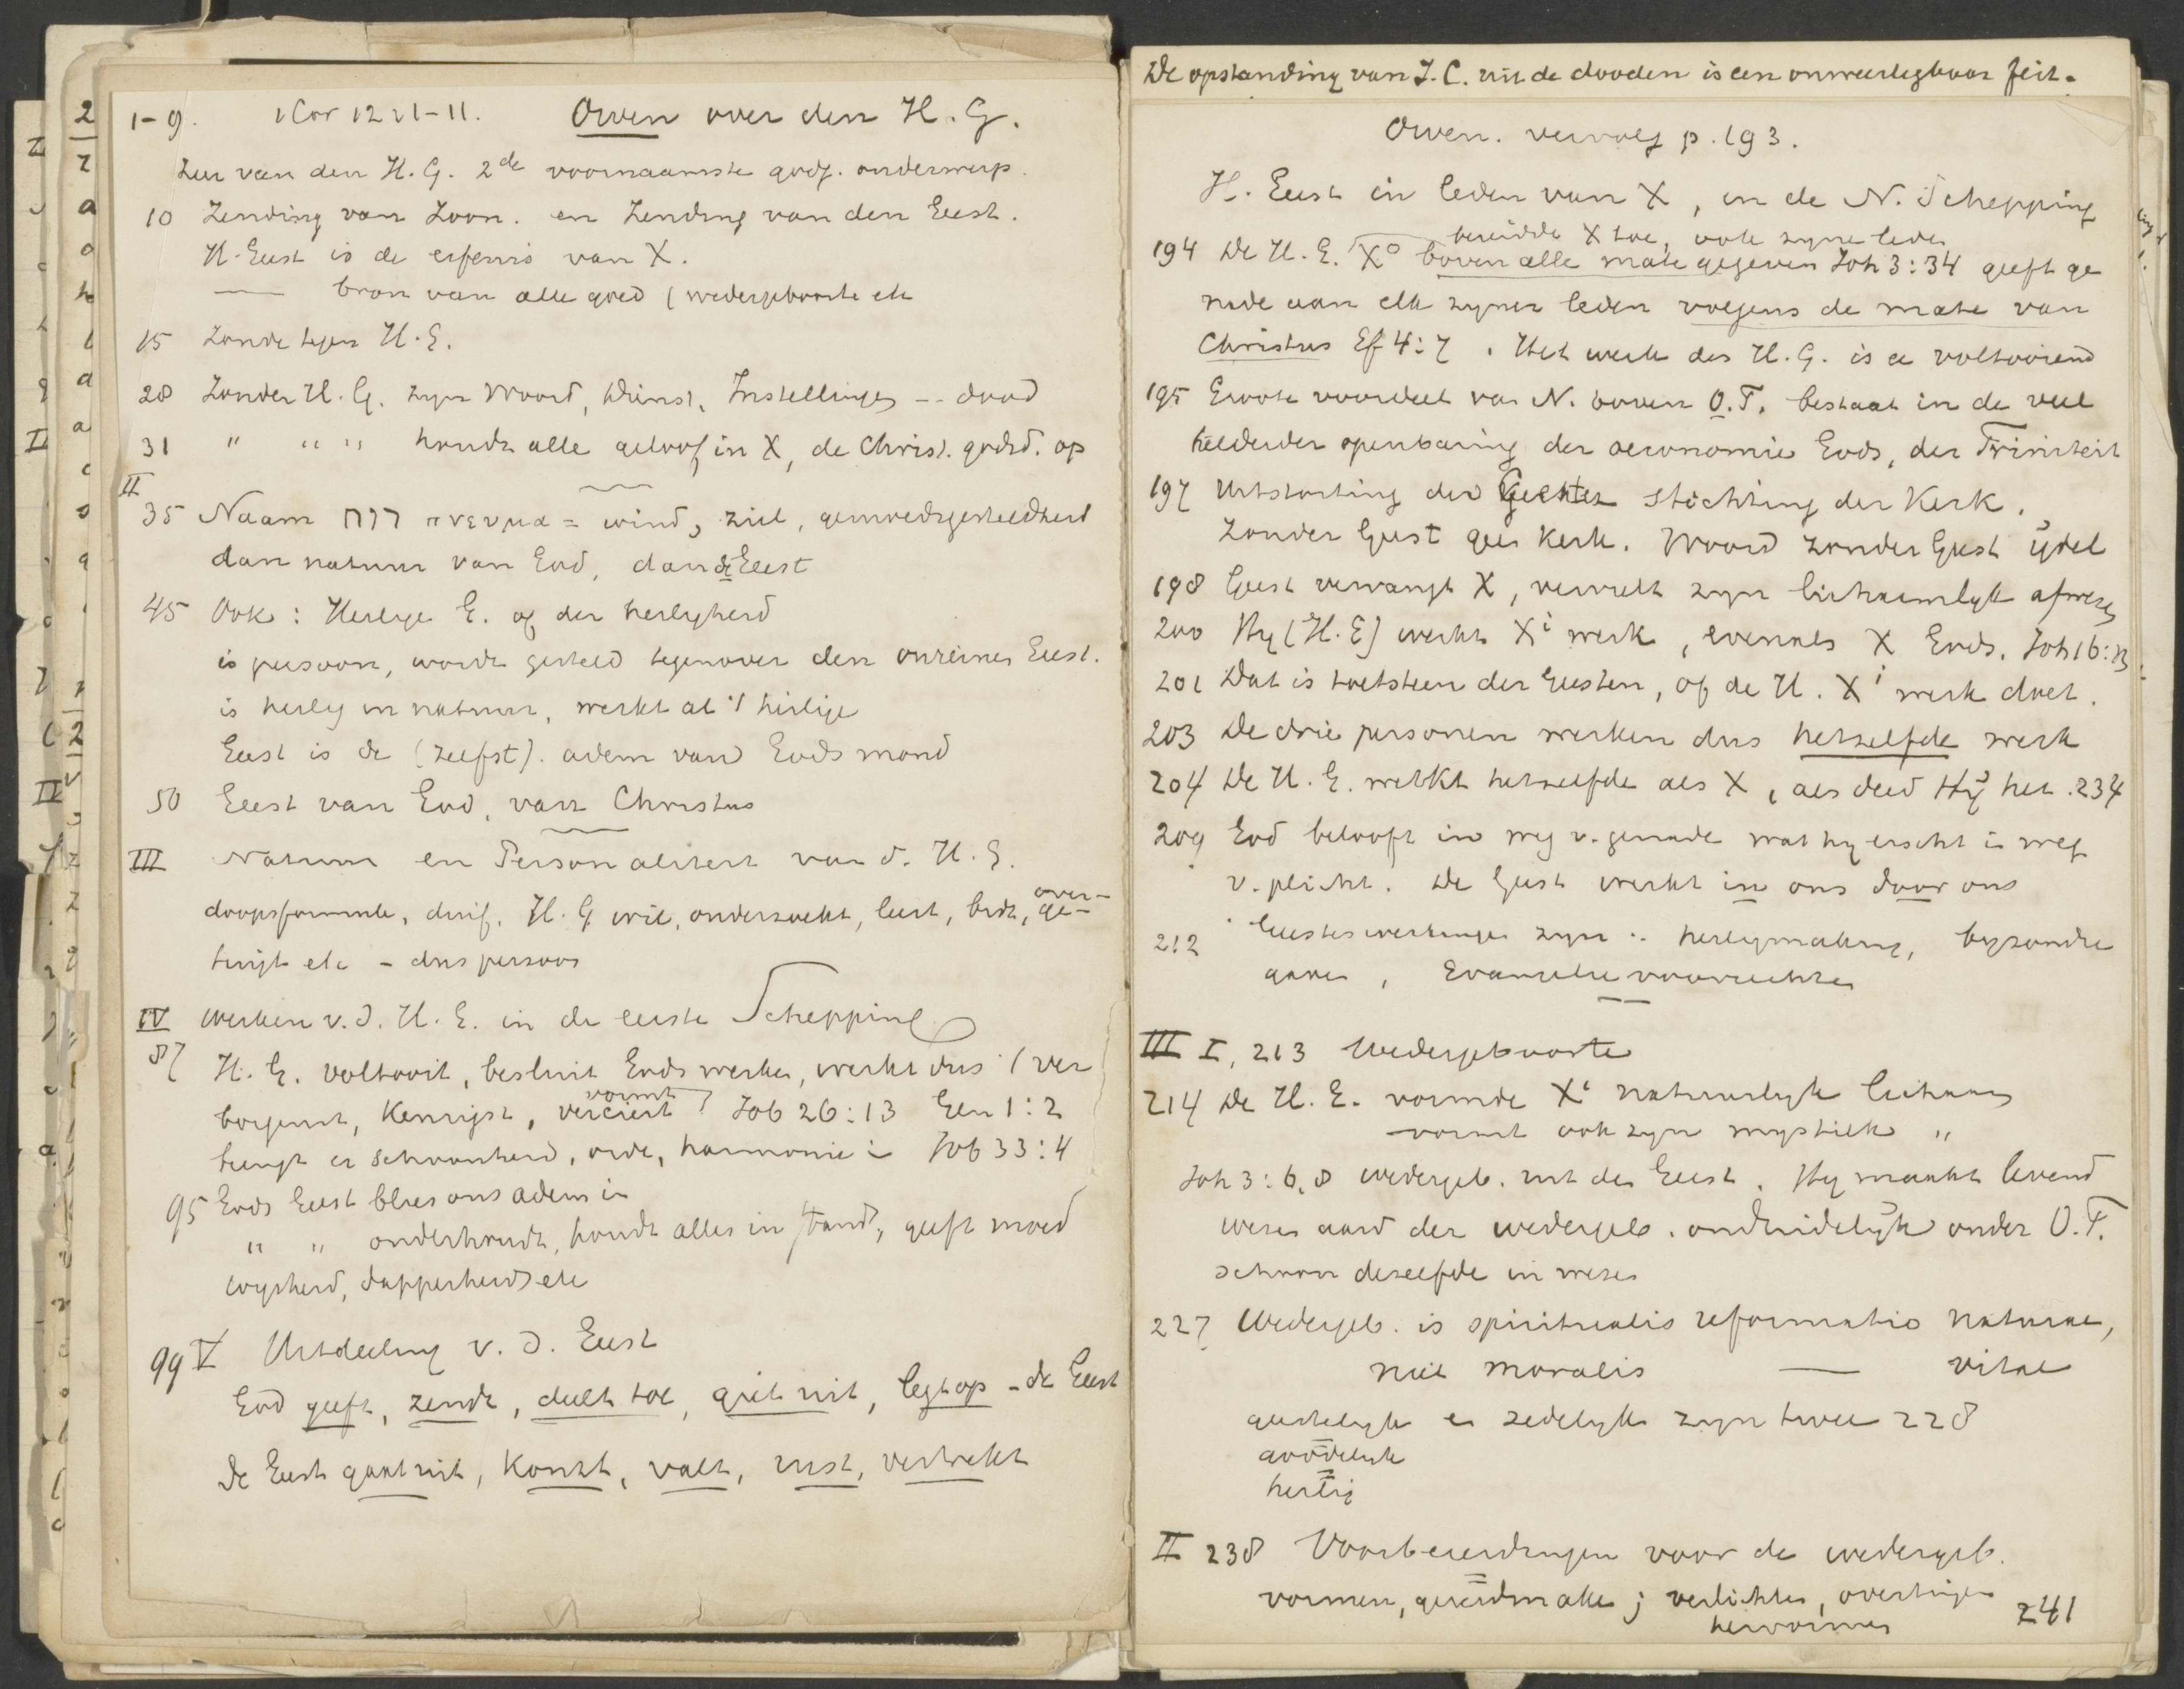 1-9. 1 Cor 12 : 1-11. Owen over den H. G.
Leer van den H. G. 2de voornaamste godg. onderwerp.
10 Zending van Zoon. en Zending van den Geest.
H. Geest is de erfenis van X.
— bron van alle goed (wedergeboorte etc
15 Zonde tegen H. G.
28 Zonder H. G. zyn Woord, Dienst, Instellingen -- dood
31 " " " houdt alle geloof in X, de Christ. godsd. op
II
35 Naam רוח πνευμα = wind, ziel, gemoedsgesteldheid
dan natuur van God, dan de Geest
45 Ook : Heilige G. of der heiligheid
is persoon, wordt gesteld tegenover den onreinen Geest.
is heilig in natuur, werkt al 't heilige
Geest is de (zelfst). adem van Gods mond
50 Geest van God, van Christus
III Natuur en Personaliteit van d. H. G.
doopsformule, duif. H. G wil, onderzoekt, leert, leidt, over-
ge-
tuigt etc - dus persoon
IV Werken v. d. H. G. in de eerste Schepping
87 H. G. voltooit, besluit Gods werken, werkt dus 't ver
vormt
borgenst, Kenrijst, verciert Job 26:13 Gen 1:2
brengt er schoonheid, orde, harmonie in Job 33:4
95 Gods Geest blies ons adem in
" " onderhoudt, houdt alles in stand, geeft moed
wysheid, dapperheid etc
99 V Uitdeeling v. d. Geest
God geeft, zendt, deelt toe, giet uit, legt op - de Geest
de Geest gaat uit, komt, valt, rust, vertrekt
De opstanding van J. C. uit de dooden is een onweerlegbaar feit.
Owen. vervolg p. 193.
H. Geest in leden van X, in de N. Schepping
bereidde X toe, ook zyne leden
194 De H. G. X° boven alle mate gegeven Joh 3:34 geeft ge
nade aan elk zyner leden volgens de mate van
Christus Ef 4:7. Het werk des H. G. is voltooiend
195 Groote voordeel van N. boven O.T. bestaat in de veel
helderder openbaring der oeconomie Gods, der Triniteit
197 Uitstorting des Geestes stichting der Kerk.
Zonder Geest geen Kerk. Woord zonder Geest ijdel
198 Geest vervangt X, vervult zyn lichaamlyk afwezen
200 Hy (H. G) werkt Xi werk, evenals X Gods. Joh 16:13
201 Dat is toetsteen der Geesten, of de H. Xi werk doet.
203 De drie personen werken dus hetzelfde werk
204 De H. G. werkt hetzelfde als X, als deed Hij het. 234
209 God belooft in weg v. genade wat hy eischt in weg
v. plicht. De Geest werkt in ons door ons
212 Geesteswerkingen zyn : heiligmaking, byzondre
gaven, Evangelie voorrechten
III I, 213 Wedergeboorte
214 De H. G. vormde Xi natuurlyk lichaam
vormt ook zyn mystiek "
Joh 3:6,8 wedergeb. uit den Geest. Hy maakt levend
wezen aard der wedergeb. onduidelijk onder O.T.
schoon dezelfde in wezen
227 Wedergeb. is spiritualis reformatio naturae,
niet moralis — vitae
geestelyk en zedelyk zyn twee 228
goddelyk
heilig
II 238 Voorbereidingen voor de wedergeb.
vormen, gereedmaken ; verlichten, overtuigen
hervormen 241